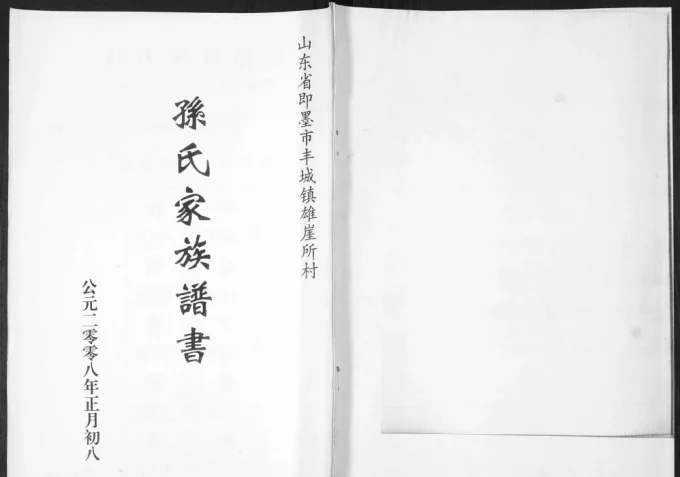 山东省即墨市丰城镇雄崖所村
孫氏家族譜書
公元二零零八年正月初八